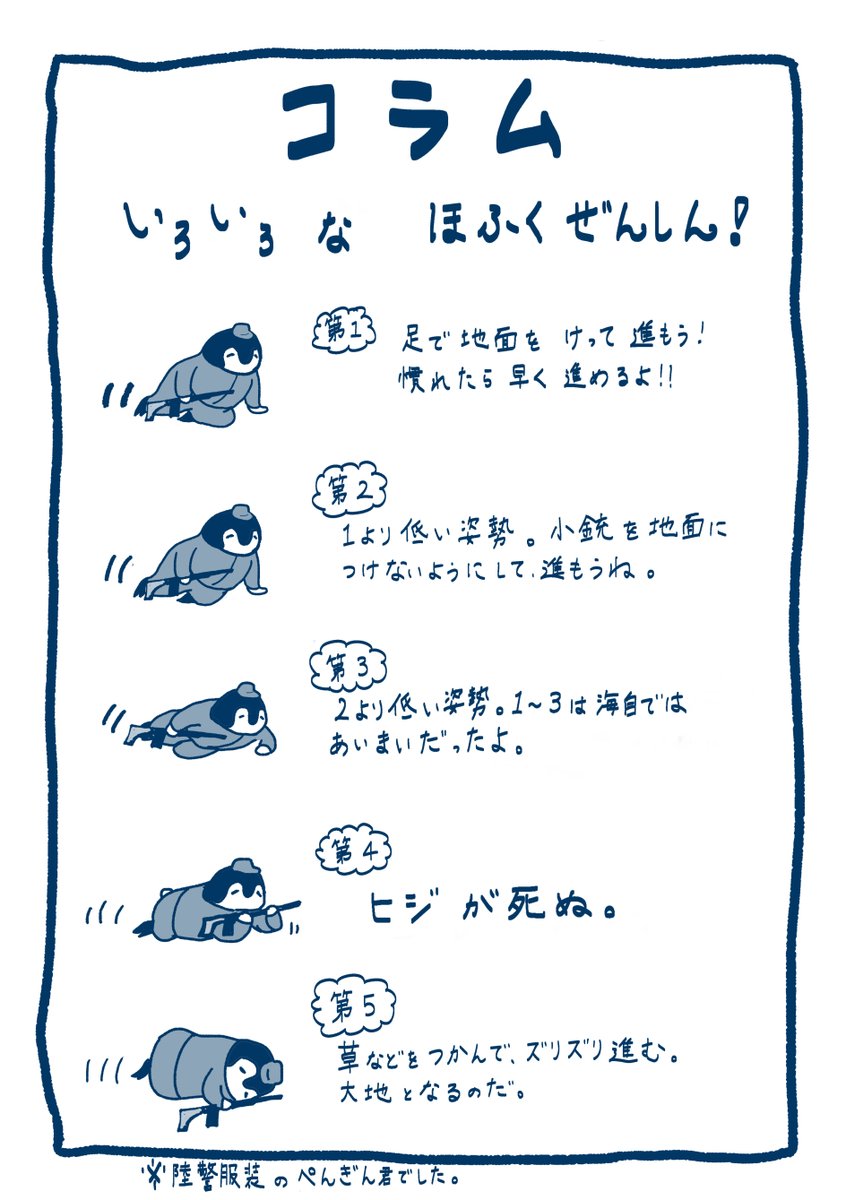 コラム
いろいろな ほふくぜんしん!
第1
足で地面をけって進もう!
慣れたら早く進めるよ!!
第2
1より低い姿勢。小銃を地面に
つけないようにして、進もうね。
第3
2より低い姿勢。1~3は海自では
あいまいだったよ。
第4
ヒジが死ぬ。
第5
草などをつかんで、ズリズリ進む。
大地となるのだ。
※陸警服装のぺんぎん君でした。